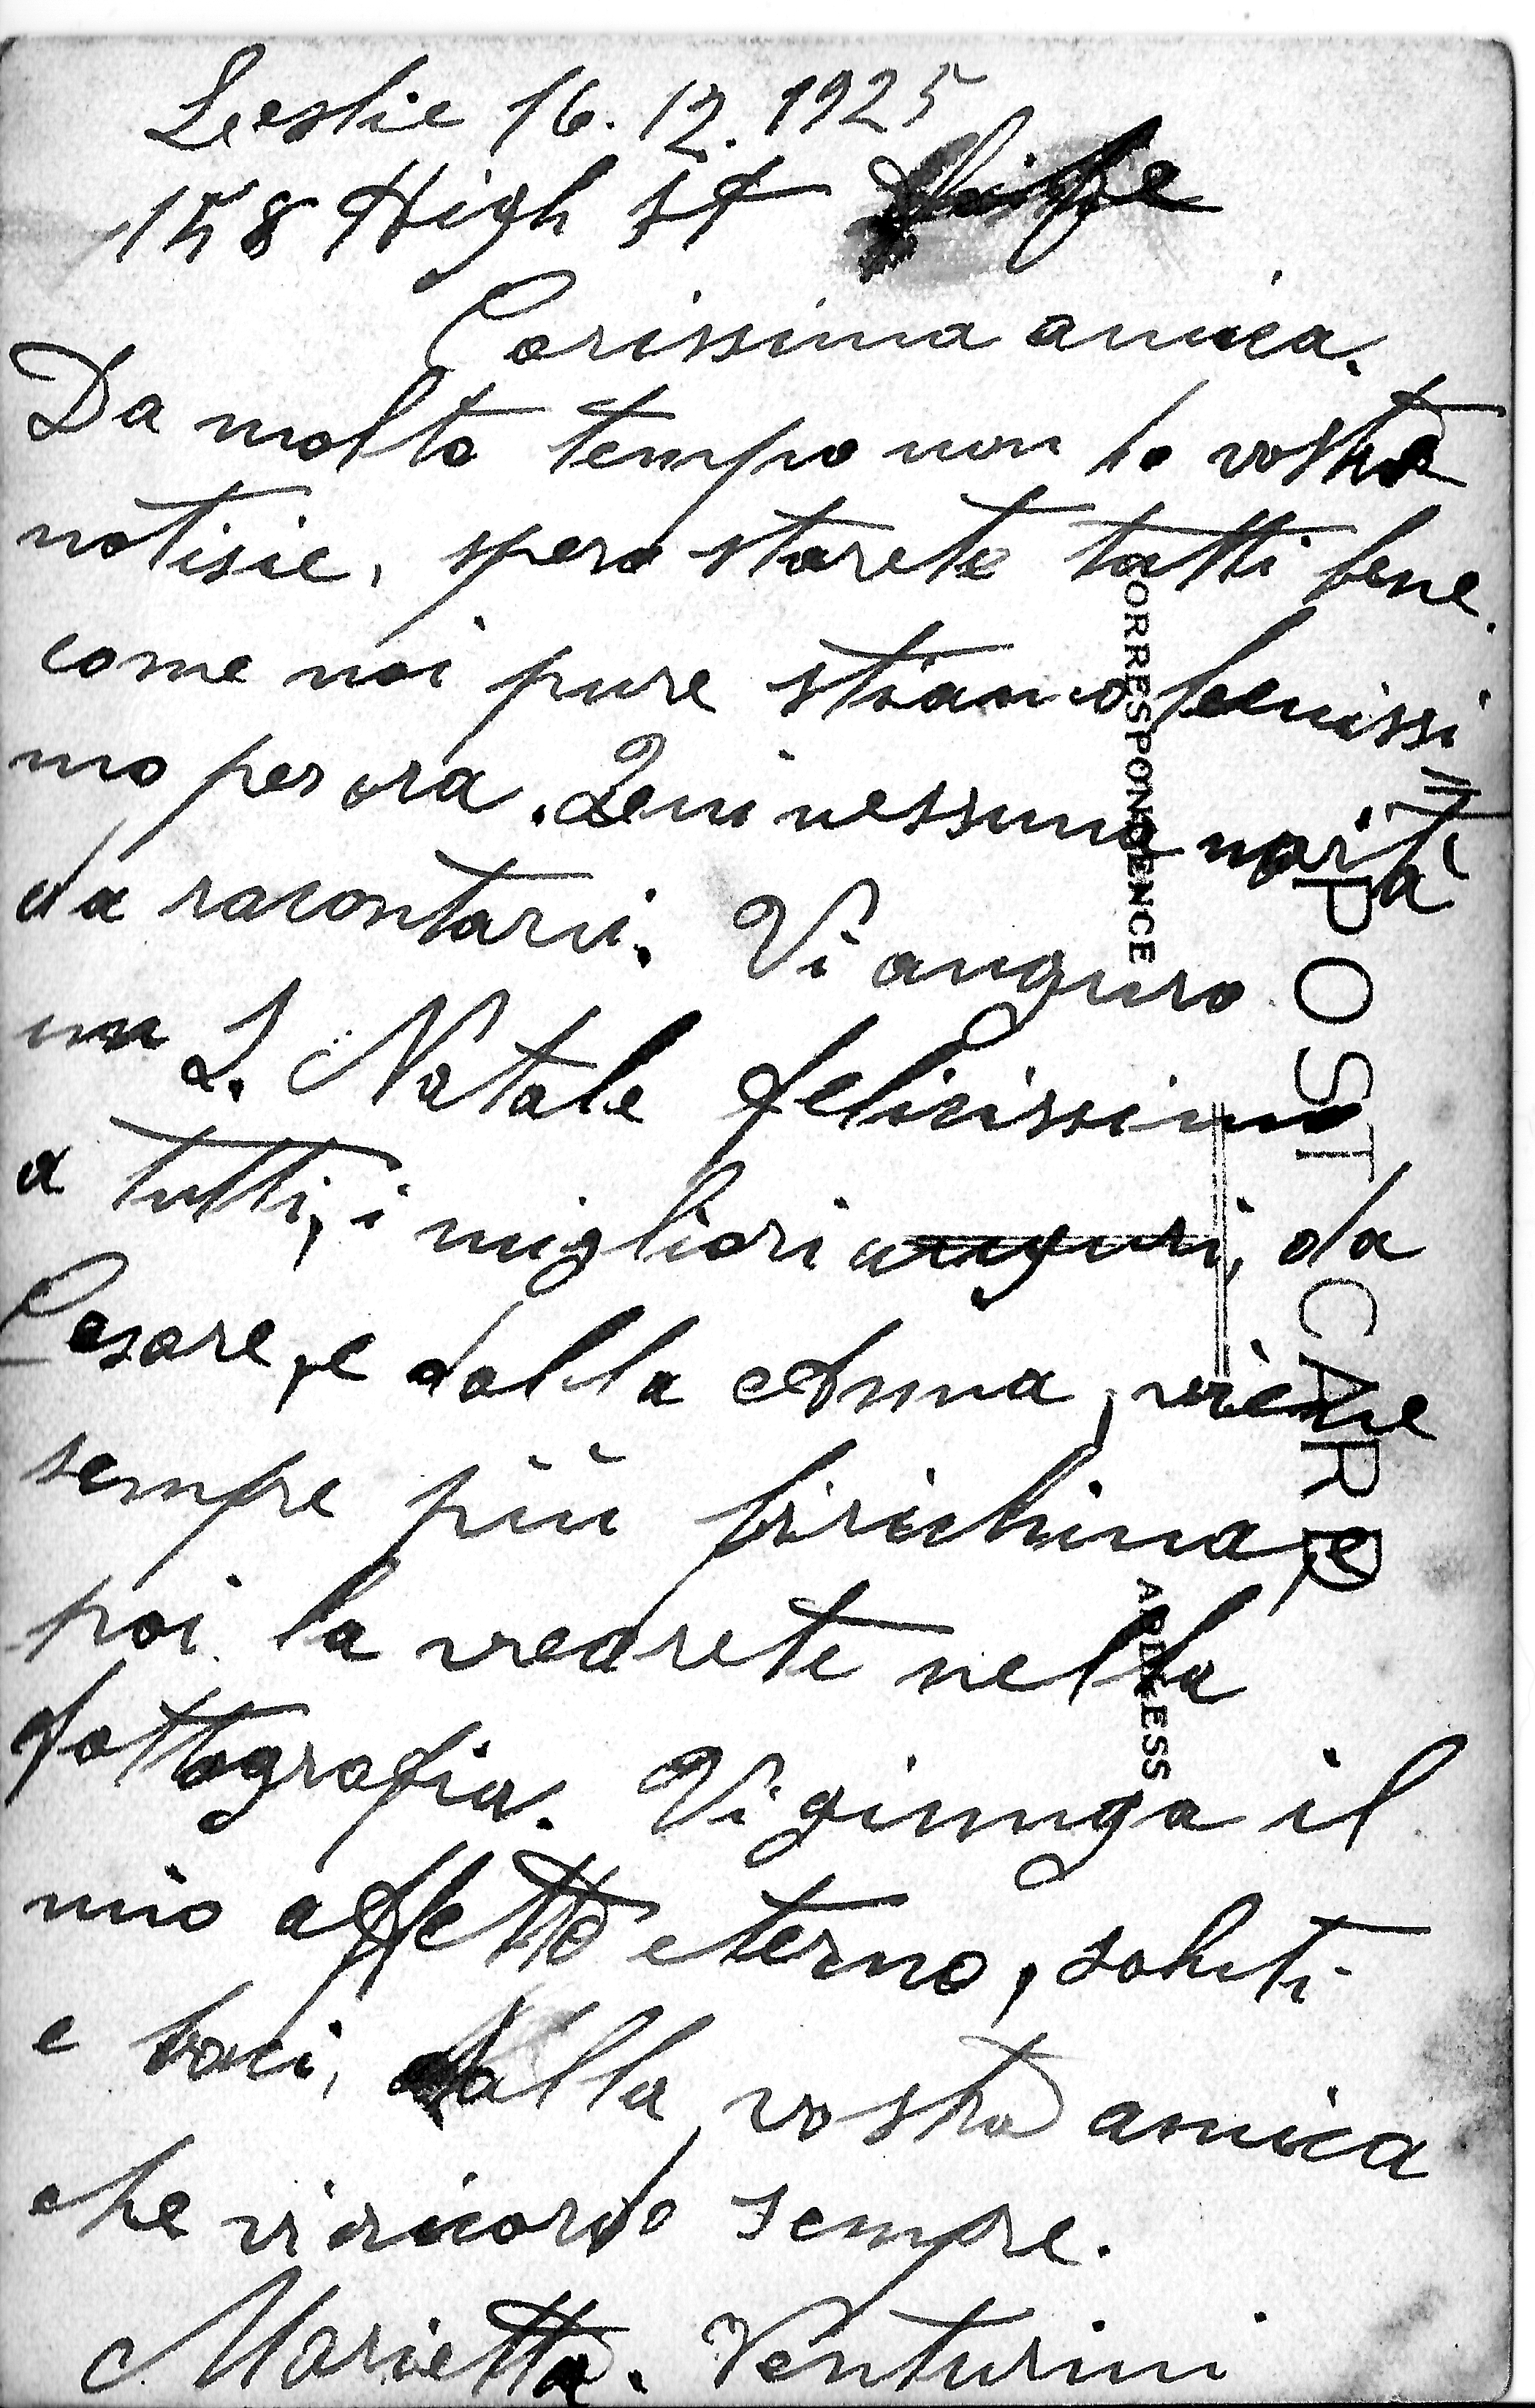 Leslie 16. 12. 1925
158 High St Fife
Carissima amica.
Da molto tempo non ho vostre
notisie, spero starete tutti bene.
come noi pure stiamo benissi
mo per ora. Qui nessuna novità
da racontarvi. Vi anguro
un S. Natale felicissimo
a tutti, i migliori anguri, da
Cesare, e dalla Anna, viene
sempre più birichina, e
poi la vedrete nella
fottografia. Vi giunga il
mio affetto eterno, saluti
e baci, dalla vostra amica
che vi ricordo sempre.
Marietta. Venturini
POST CARD
CORRESPONDENCE
ADDRESS